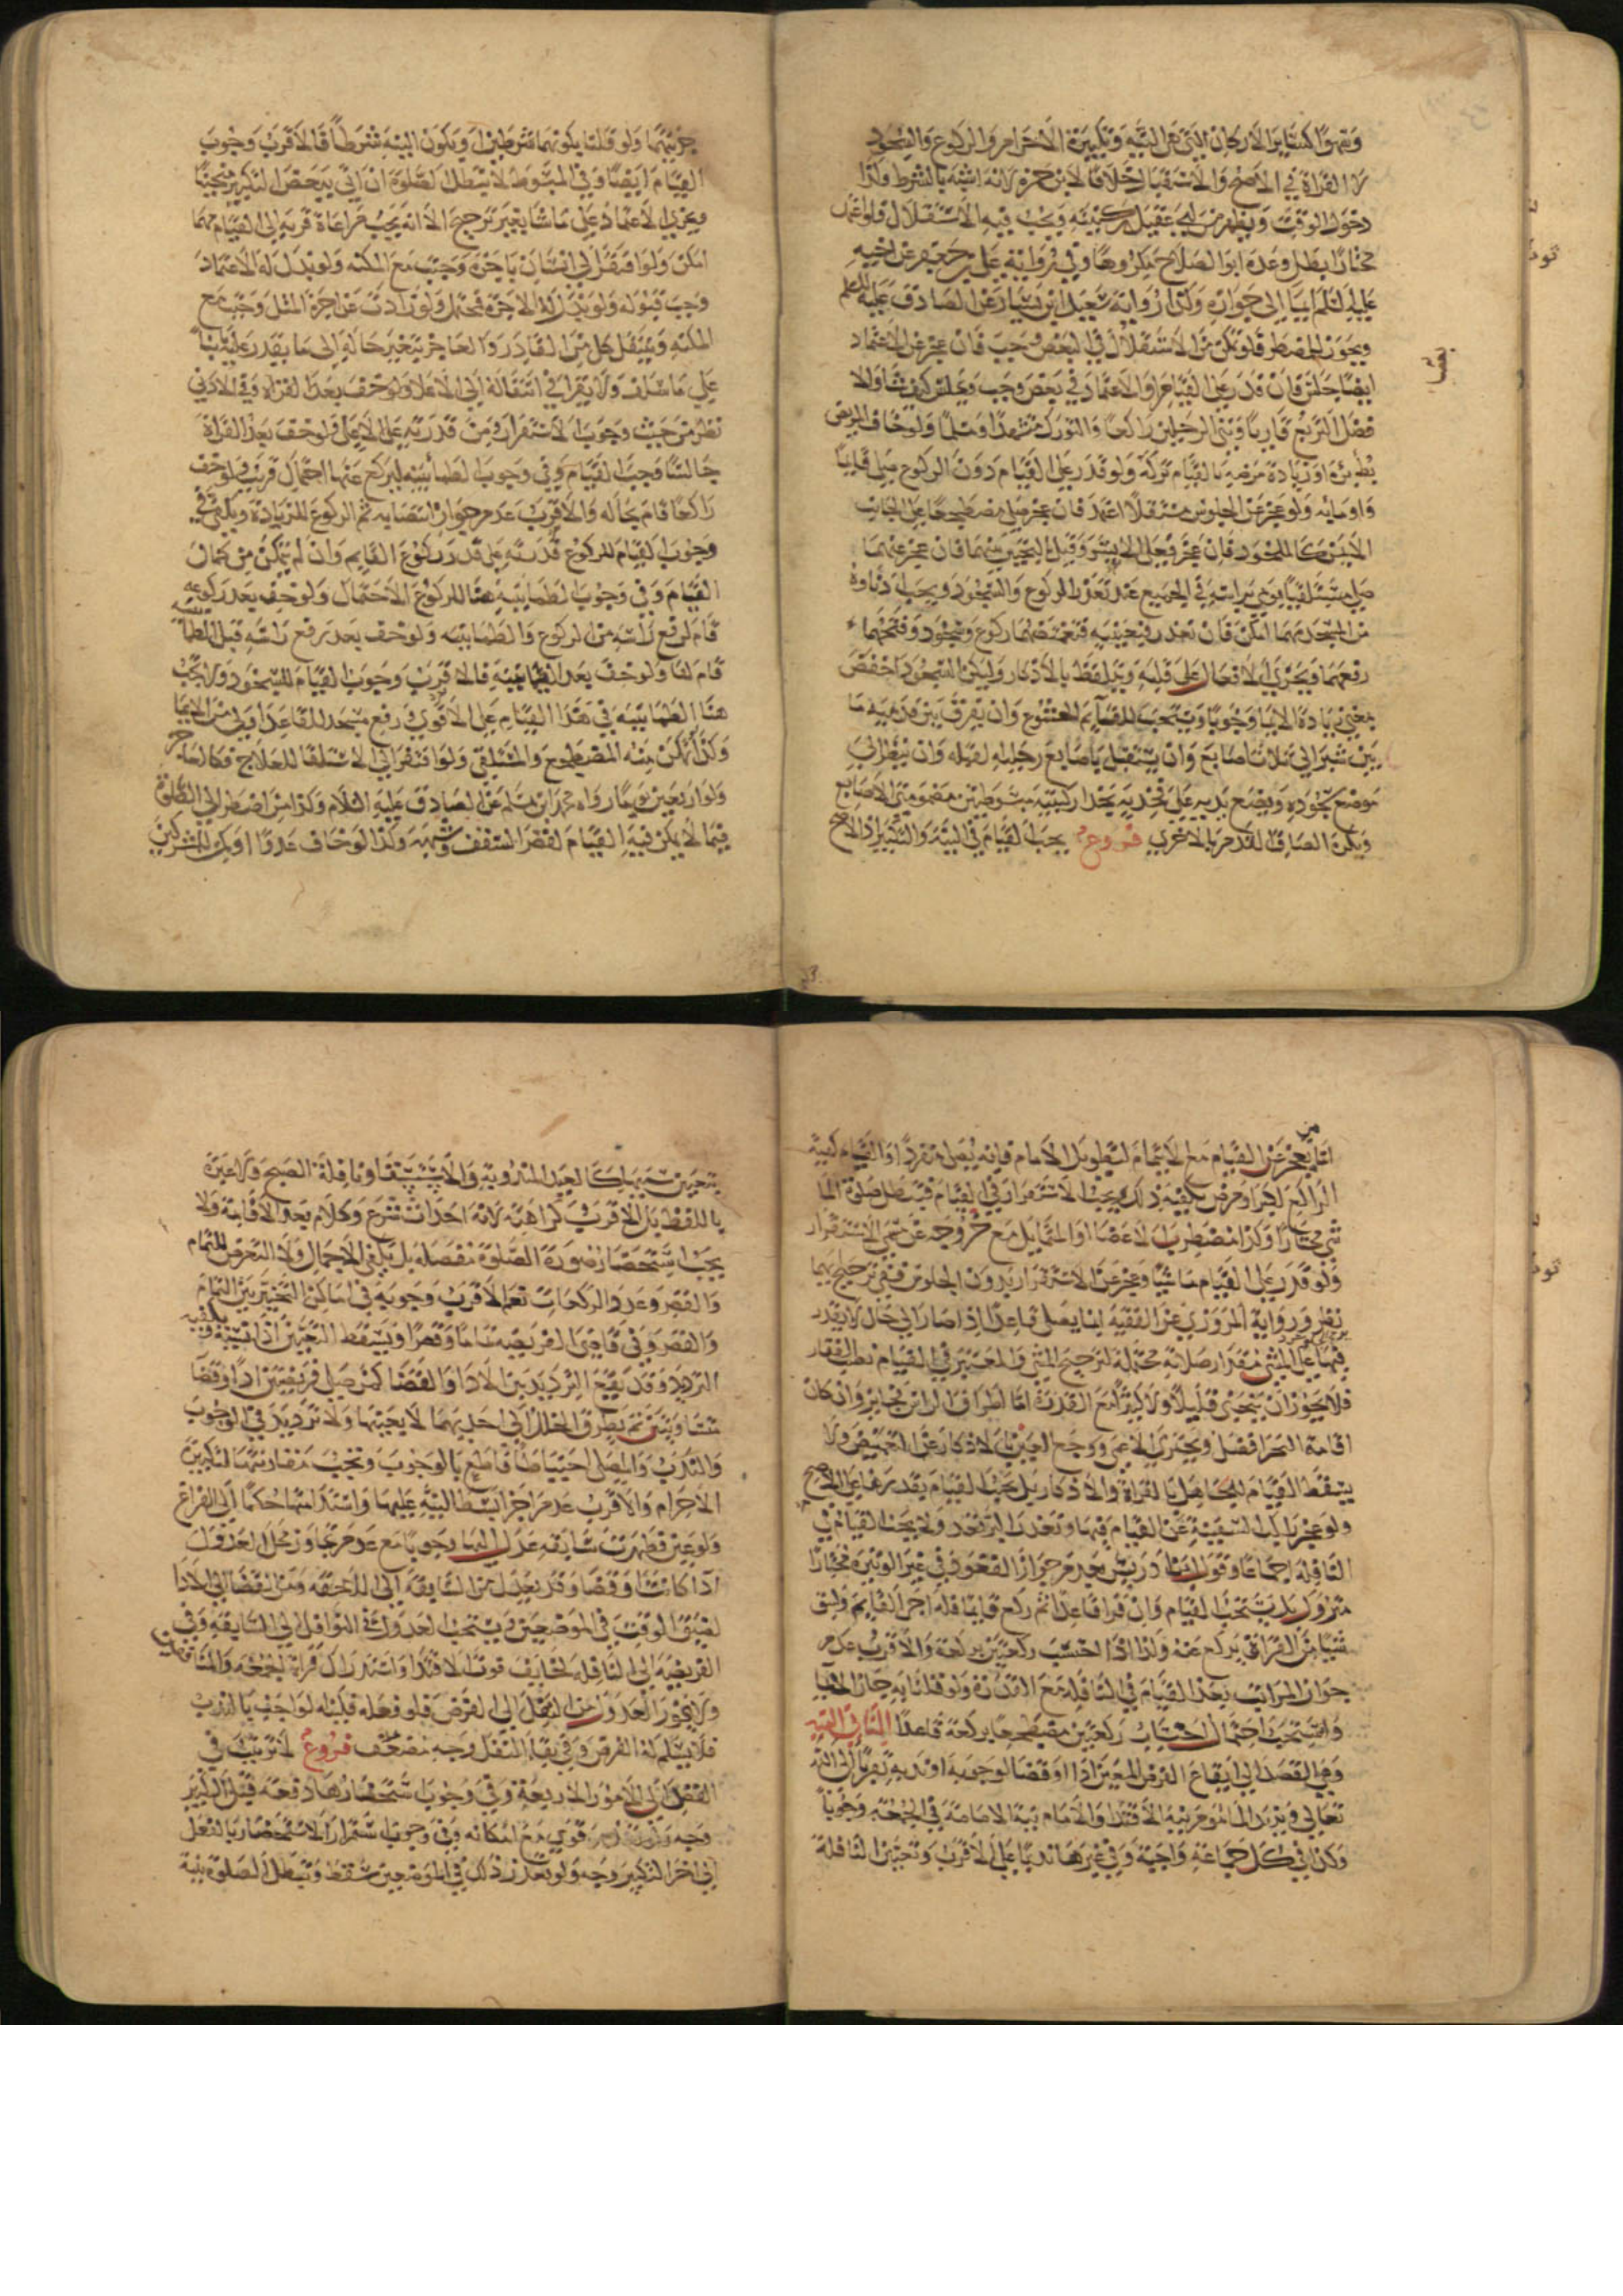 وهو كسائر الاركان التي هي النية وتكبيرة الاحرام والركوع والسجود
لا القراة في الاصح والاستقبال خلافا لابن حمزة لانه اشبه بالشرط وكذا
دخول الوقت ويظهر من ابي عقيل ركنيته ويجب فيه الاستقلال فلو اعتمد
مختارا بطل وعده ابو الصلاح مكروها وفي رواية علي بن جعفر عن اخيه
عليه السلم ايما الى جوازه وكذا رواية سعيد ابن يسار عن الصادق عليه السلم
ويجوز للمضطر فلو تمكن من الاستقلال في البعض وجب فان عجز عن الاعتماد
ايضا جلس فان قدر على القيام او الاعتماد في بعض وجب ويجلس كيف شاء والا
فضل التربع قاريا وثني الرجلين راكعا والتورك متشهدا ومسلما ولو خاف المريض
بطء برئه او زيادة مرضه بالقيام تركه ولو قدر على القيام دون الركوع صلى قايما
واوما به ولو عجز عن الجلوس مستقلا اعتمد فان عجز صلى مضطجعا على الجانب
الايمن كالملحود فان عجز فعلى الايسر وقيل يتخير بينهما فان عجز عنهما
صلى مستلقيا يومي براسه في الجميع عند تعذر الركوع والسجود ويجب ادناوه
من المسجد مهما امكن فان تعذر فبعينيه فتغميضهما ركوع وسجود وفتحهما
رفعهما ويجري الافعال على قلبه ويتلفظ بالاذكار وليكن السجود اخفض
بمعنى زيادة الايما وجوبا ويستحب للقيام الخشوع وان يفرق بين قدميه ما
بين شبر الى ثلاث اصابع وان يستقبل باصابع رجليه القبله وان ينظر الى
موضع سجوده ويضع يديه على فخذيه بحذا ركبتيه مبسوطتين مضمومتي الاصابع
ويكره الصاق القدم بالاخرى فروع يجب القيام في النية والتكبير اذ الاصح
جزئيتهما ولو قلنا بكونهما شرطين او بكون النية شرطا فالاقرب وجوب
القيام ايضا وفي المبسوط لا تبطل الصلوة ان اتى ببعض التكبير منحنيا
ويجزي الاعتماد على ما شا بغير ترجيح الا انه يجب مراعاة قربه الى القيام مهما
امكن ولو افتقر الى انسان باجرة وجبت مع المكنه ولو بذل له الاعتماد
وجب قبوله ولو بذل له الاجرة فمحتمل ولو زادت عن اجرة المثل وجب مع
المكنه وينتقل كل من القادر والعاجز بتغير حاله الى ما يقدر عليه بانيا
على ما سلف ولا يقرا في انتقاله الى الاعلا ولو خف بعد القراة وفي الادنى
نظر من حيث وجوب الاستقرار ومن قدرته على الاعلى فلو خف بعد القراة
جالسا وجب القيام وفي وجوب الطمانينه ليركع عنها احتمال قريب فلو خف
راكعا قام بحاله والاقرب عدم جواز انتصابه ثم الركوع للزيادة ويكفي في
وجوب القيام للركوع قدرته على قدر ركوع القايم وان لم يتمكن من كمال
القيام وفي وجوب الطمانينه هنا للركوع الاحتمال ولو خف بعد ركوعه
قام لرفع راسه من الركوع والطمانينه ولو خف بعد رفع راسه قبل الطمانينه
قام لها ولو خف بعد الطمانينة فالاقرب وجوب القيام للسجود ولا تجب
هنا الطمانينه في هذا القيام على الاقوى وفي رفع مسجد للقاعد اولى من الايما
وكذا ان تمكن منه المضطجع والمستلقي ولو افتقر الى الاستلقا للعلاج فكالعجز
ولو اربعين يوما رواه محمد ابن مسلم عن الصادق عليه السلام وكذا من اضطر الى الصلوة
فيما لا يمكن فيه القيام لقصر السقف وشبهه وكذا لو خاف عدوا او كمن للمشركين
اما من يعجز عن القيام مع الايتمام لتطويل الامام فانه يصلي منفردا والقيام كهية
الراكع لكبر او مرض يكفيه ذلك ويجب الاستقرار في القيام فتبطل صلوة الما
شي مختارا وكذا مضطرب الاعضا او المتمايل مع خروجه عن مسمى الاستقرار
ولو قدر على القيام ماشيا وعجز عن الاستقرار بدون الجلوس ففي ترجيح ايهما
نظر ورواية المروزي عن الفقيه انما يصلي قاعدا اذا صار الى حال لا يقدر
فيها على المشي مقدار صلاته محتملة لترجيح المشي والمعتبر في القيام نصب الفقار
فلا يجوز ان ينحني قليلا ولا كثيرا مع القدرة اما اطراق الراس فجايز وان كان
اقامة النحر افضل ويجتزي الاعمى ووجع العين بالاذكار عن التغميض ولا
يسقط القيام للجاهل بالقراة والاذكار بل يجب القيام بقدرها على الاصح
ولو عجز راكب السفينة عن القيام فيها وتعذر البر قعد ولا يجب القيام في
النافله اجماعا وقول ابن ادريس بعدم جواز القعود في غير الوتيرة مختارا
متروك بل يستحب القيام وان قرا قاعدا ثم ركع قايما فله اجر القايم وليبق
شيا من القراة ليركع عنه ولذا اذا احتسب ركعتين بركعة والاقرب عدم
جواز المراتب بعد القيام في النافله مع القدرة ولو قلنا به جاز الايما
واستحب احتمال احتساب ركعتين مضطجعا بركعة قاعدا الثاني النية
وهي القصد الى ايقاع الفرض المعين ادا او قضا لوجوبه او ندبه تقربا الى الله
تعالى ويزيد الماموم نية الاقتدا والامام نية الامامة في الجمعة وجوبا
وكذا في كل جماعة واجبة وفي غيرها ندبا على الاقرب وتعيين النافلة
بتعيين سببها كالعيد المندوبة والاستسقا ونافلة الصبح ولا عبرة
باللفظ بل الاقرب كراهته لانه احداث شرع وكلام بعد الاقامة ولا
يجب استحضار صورة الصلوة مفصله بل يكفي الاجمال ولا التعرض للتمام
والقصر وعدد الركعات نعم الاقرب وجوبه في اماكن التخيير بين التمام
والقصر وفي قاضي الفريضه تماما وقصرا ويسقط التعيين اذا نسيه فيكفيه
الترديد وقد يقع الترديد بين الادا والقضا كمن صلى فريضتين ادا وقضا
متساويتين ثم تطرق الخلل الى احديهما لا يعينها ولا ترديد في الوجوب
والندب والمصلي احتياطا قاطع بالوجوب وتجب مقارنتها لتكبيرة
الاحرام والاقرب عدم اجزا بسط النية عليها واستدامتها حكما الى الفراغ
ولو عين فظهرت سابقه عدل اليها وجوبا مع عدم تجاوز محل العدول
ادا كانتا وقضا وقد يعدل من السابقة الى اللاحقه ومن القضا الى الادا
لضيق الوقت في الموضعين ويستحب العدول في النوافل الى السابقه وفي
الفريضه الى النافله لخايف فوت الاقتدا واستدراك قراة الجمعه والمنافقين
ولا يجوز العدول من النفل الى الفرض فلو فعله قلبا لواجب بالندب
فلا يسلم له الفرض وفي بقا النفل وجه ضعف فروع لا ترتيب في
القصد الى الامور الاربعة وفي وجوب استحضارها دفعه قبل التكبير
وجه قوي مع امكانه وفي وجوب استمرار الاستحضار بالفعل
الى اخر التكبير وجه ولو تعذر ذلك في الموضعين سقط وتبطل الصلوة بنية